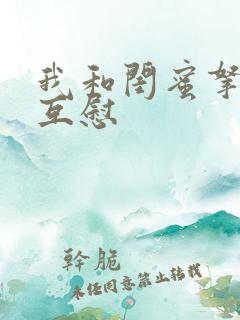 我和閨蜜
互慰
幹脆
未经同意禁止转载